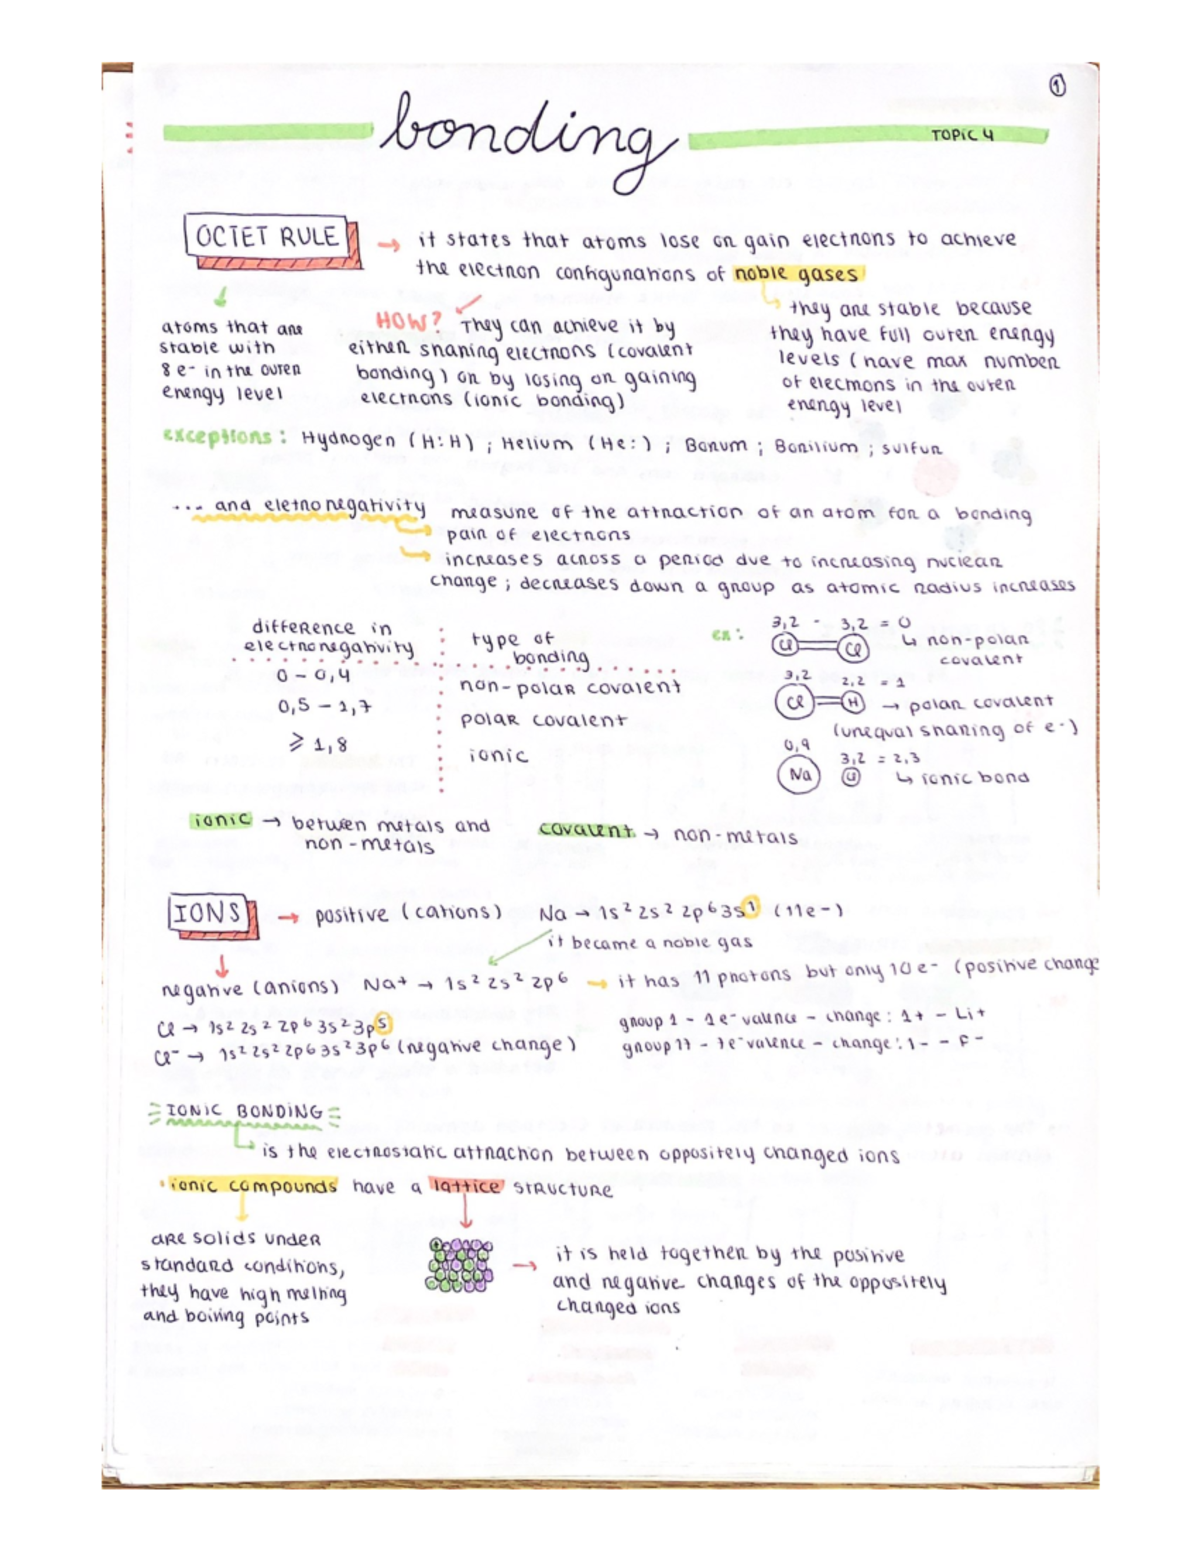 1
bonding
TOPIC 4
OCTET RULE → it states that atoms lose or gain electrons to achieve
the electron configurations of noble gases
atoms that are
stable with
8 e- in the outer
energy level
HOW? They can achieve it by
either sharing electrons (covalent
bonding) or by losing or gaining
electrons (ionic bonding)
they are stable because
they have full outer energy
levels (have max number
of elecmons in the outer
energy level
exceptions: Hydrogen (H:H) ; Helium (He:) ; Borium ; Borilium ; sulfur
... and eletronegativity measure of the attraction of an atom for a bonding
pair of electrons
increases across a period due to increasing nuclear
charge ; decreases down a group as atomic radius increases
difference in
electronegativity
type of
bonding
0 - 0,4 non-polar covalent
0,5 - 1,7 polar covalent
⩾ 1,8 ionic
ex:
3,2 - 3,2 = 0
Cl Cl
↳ non-polar
covalent
3,2 2,2 = 1
Cl H → polar covalent
(unequal sharing of e-)
0,9
3,2 = 2,3
Na Cl ↳ ionic bond
ionic → between metals and
non-metals
covalent → non-metals
IONS → positive (cations) Na → 1s² 2s² 2p⁶ 3s¹ (11e-)
it became a noble gas
negative (anions) Na+ → 1s² 2s² 2p⁶ → it has 11 protons but only 10 e- (positive charge
Cl → 1s² 2s² 2p⁶ 3s² 3p⁵
Cl⁻ → 1s² 2s² 2p⁶ 3s² 3p⁶ (negative charge)
group 1 - 1e⁻ valence - charge: 1+ - Li+
group 17 - 7e⁻ valence - charge: 1- - F-
IONIC BONDING
is the electrostatic attraction between oppositely charged ions
• ionic compounds have a lattice structure
are solids under
standard conditions,
they have high melting
and boiling points
→ it is held together by the positive
and negative charges of the oppositely
charged ions